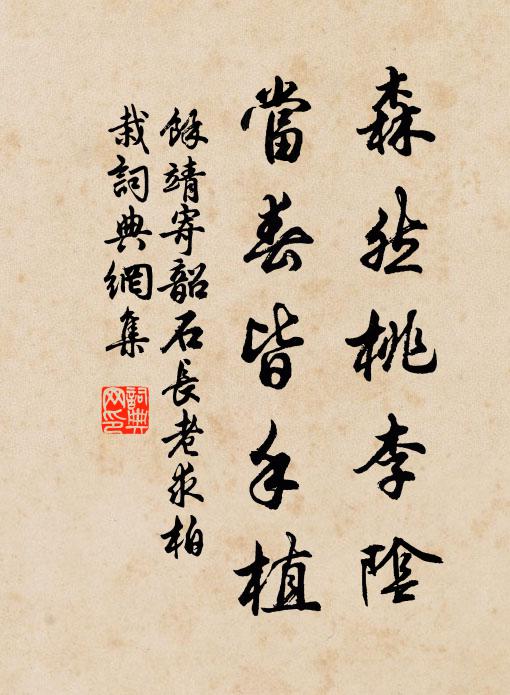 森然桃李陰
當春皆手植
餘靖寄韶石長老求柏
栽詞典網集
詞典
网印